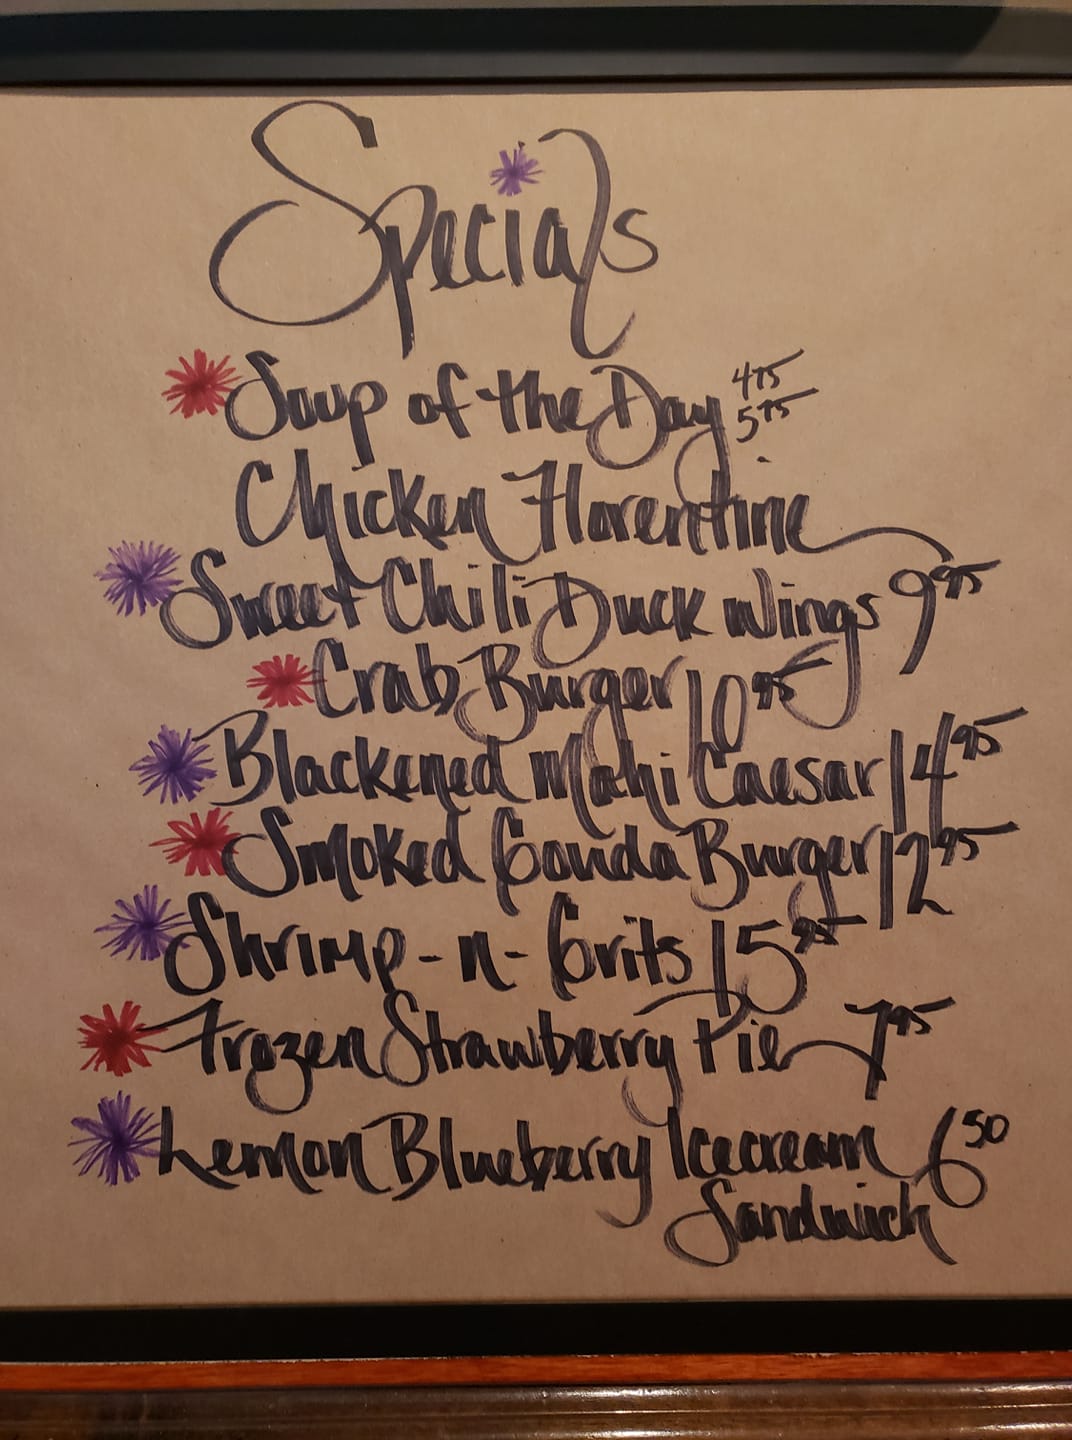 Specials
Soup of the Day 4.75
5.75
Chicken Florentine
Sweet Chili Duck Wings 9.95
Crab Burger 10.95
Blackened Mahi Caesar 14.95
Smoked Gouda Burger 12.95
Shrimp-n-Grits 15.95
Frozen Strawberry Pie 7.95
Lemon Blueberry Icecream 6.50
Sandwich